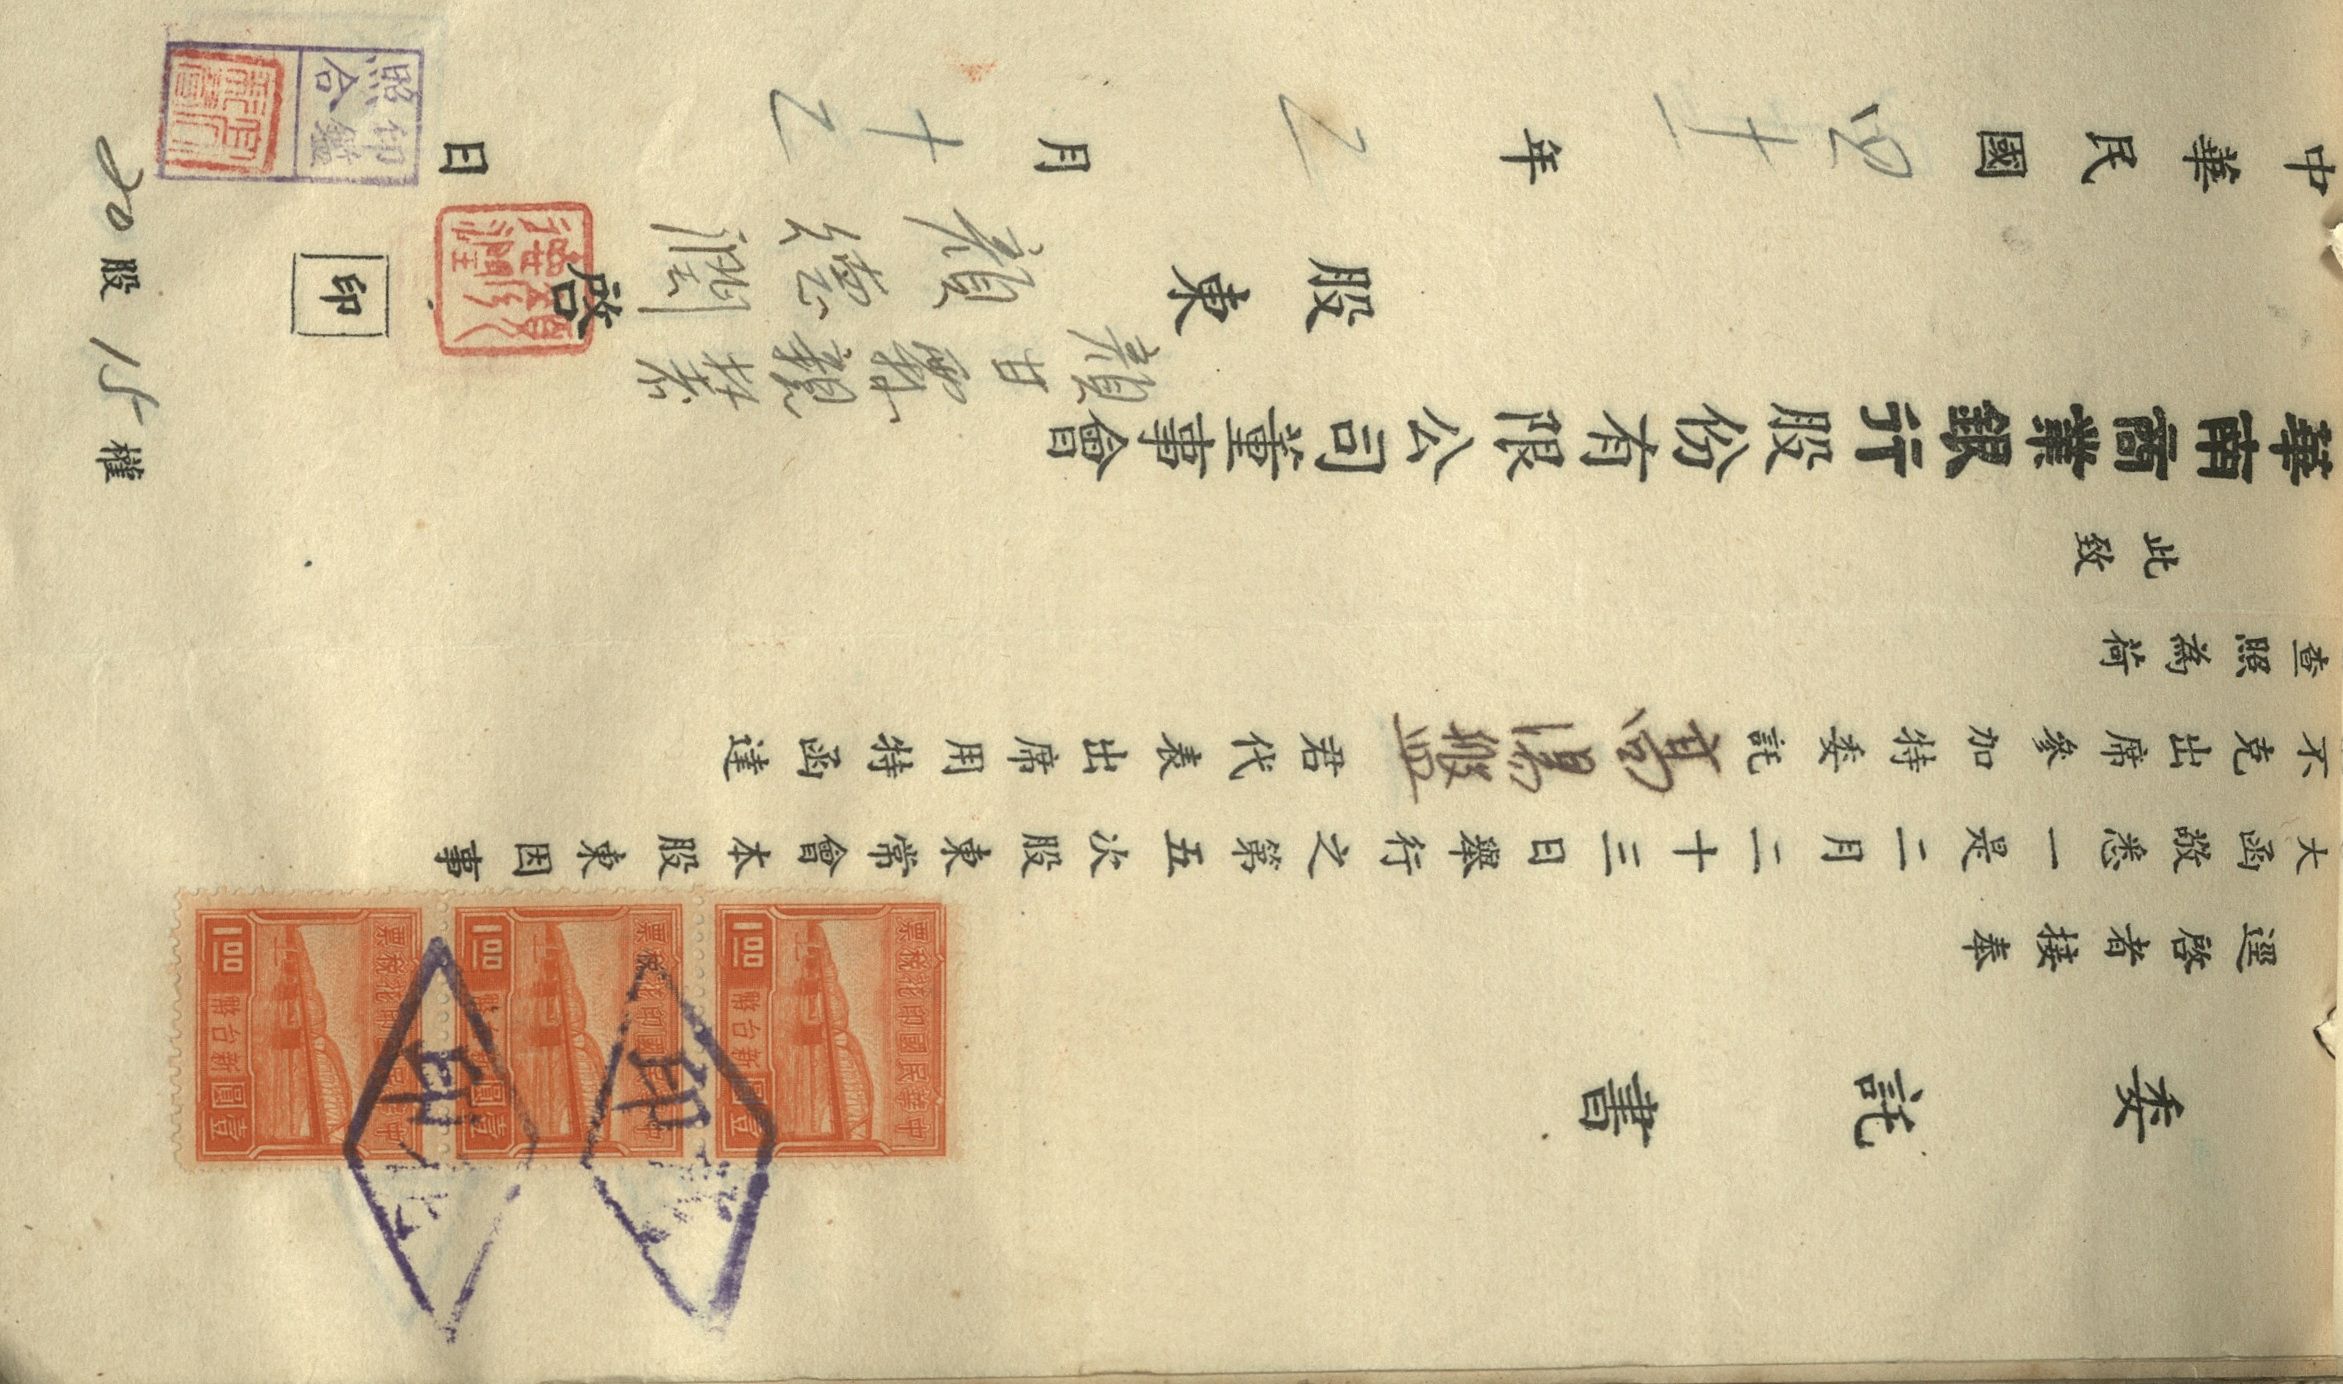 委託書
逕啓者接奉
大函敬悉一是二月二十三日舉行之第五次股東常會本股東因事
不克出席參加特委託高湯盤君代表出席用特函達
查照為荷
此致
華南商業銀行股份有限公司董事會
股東 顏德潤 啟 印
中華民國四十一年2月十2日
20股15權
印鑑
照合
中華民國印花稅票
壹圓 新台幣 1.00
中華民國印花稅票
壹圓 新台幣 1.00
中華民國印花稅票
壹圓 新台幣 1.00